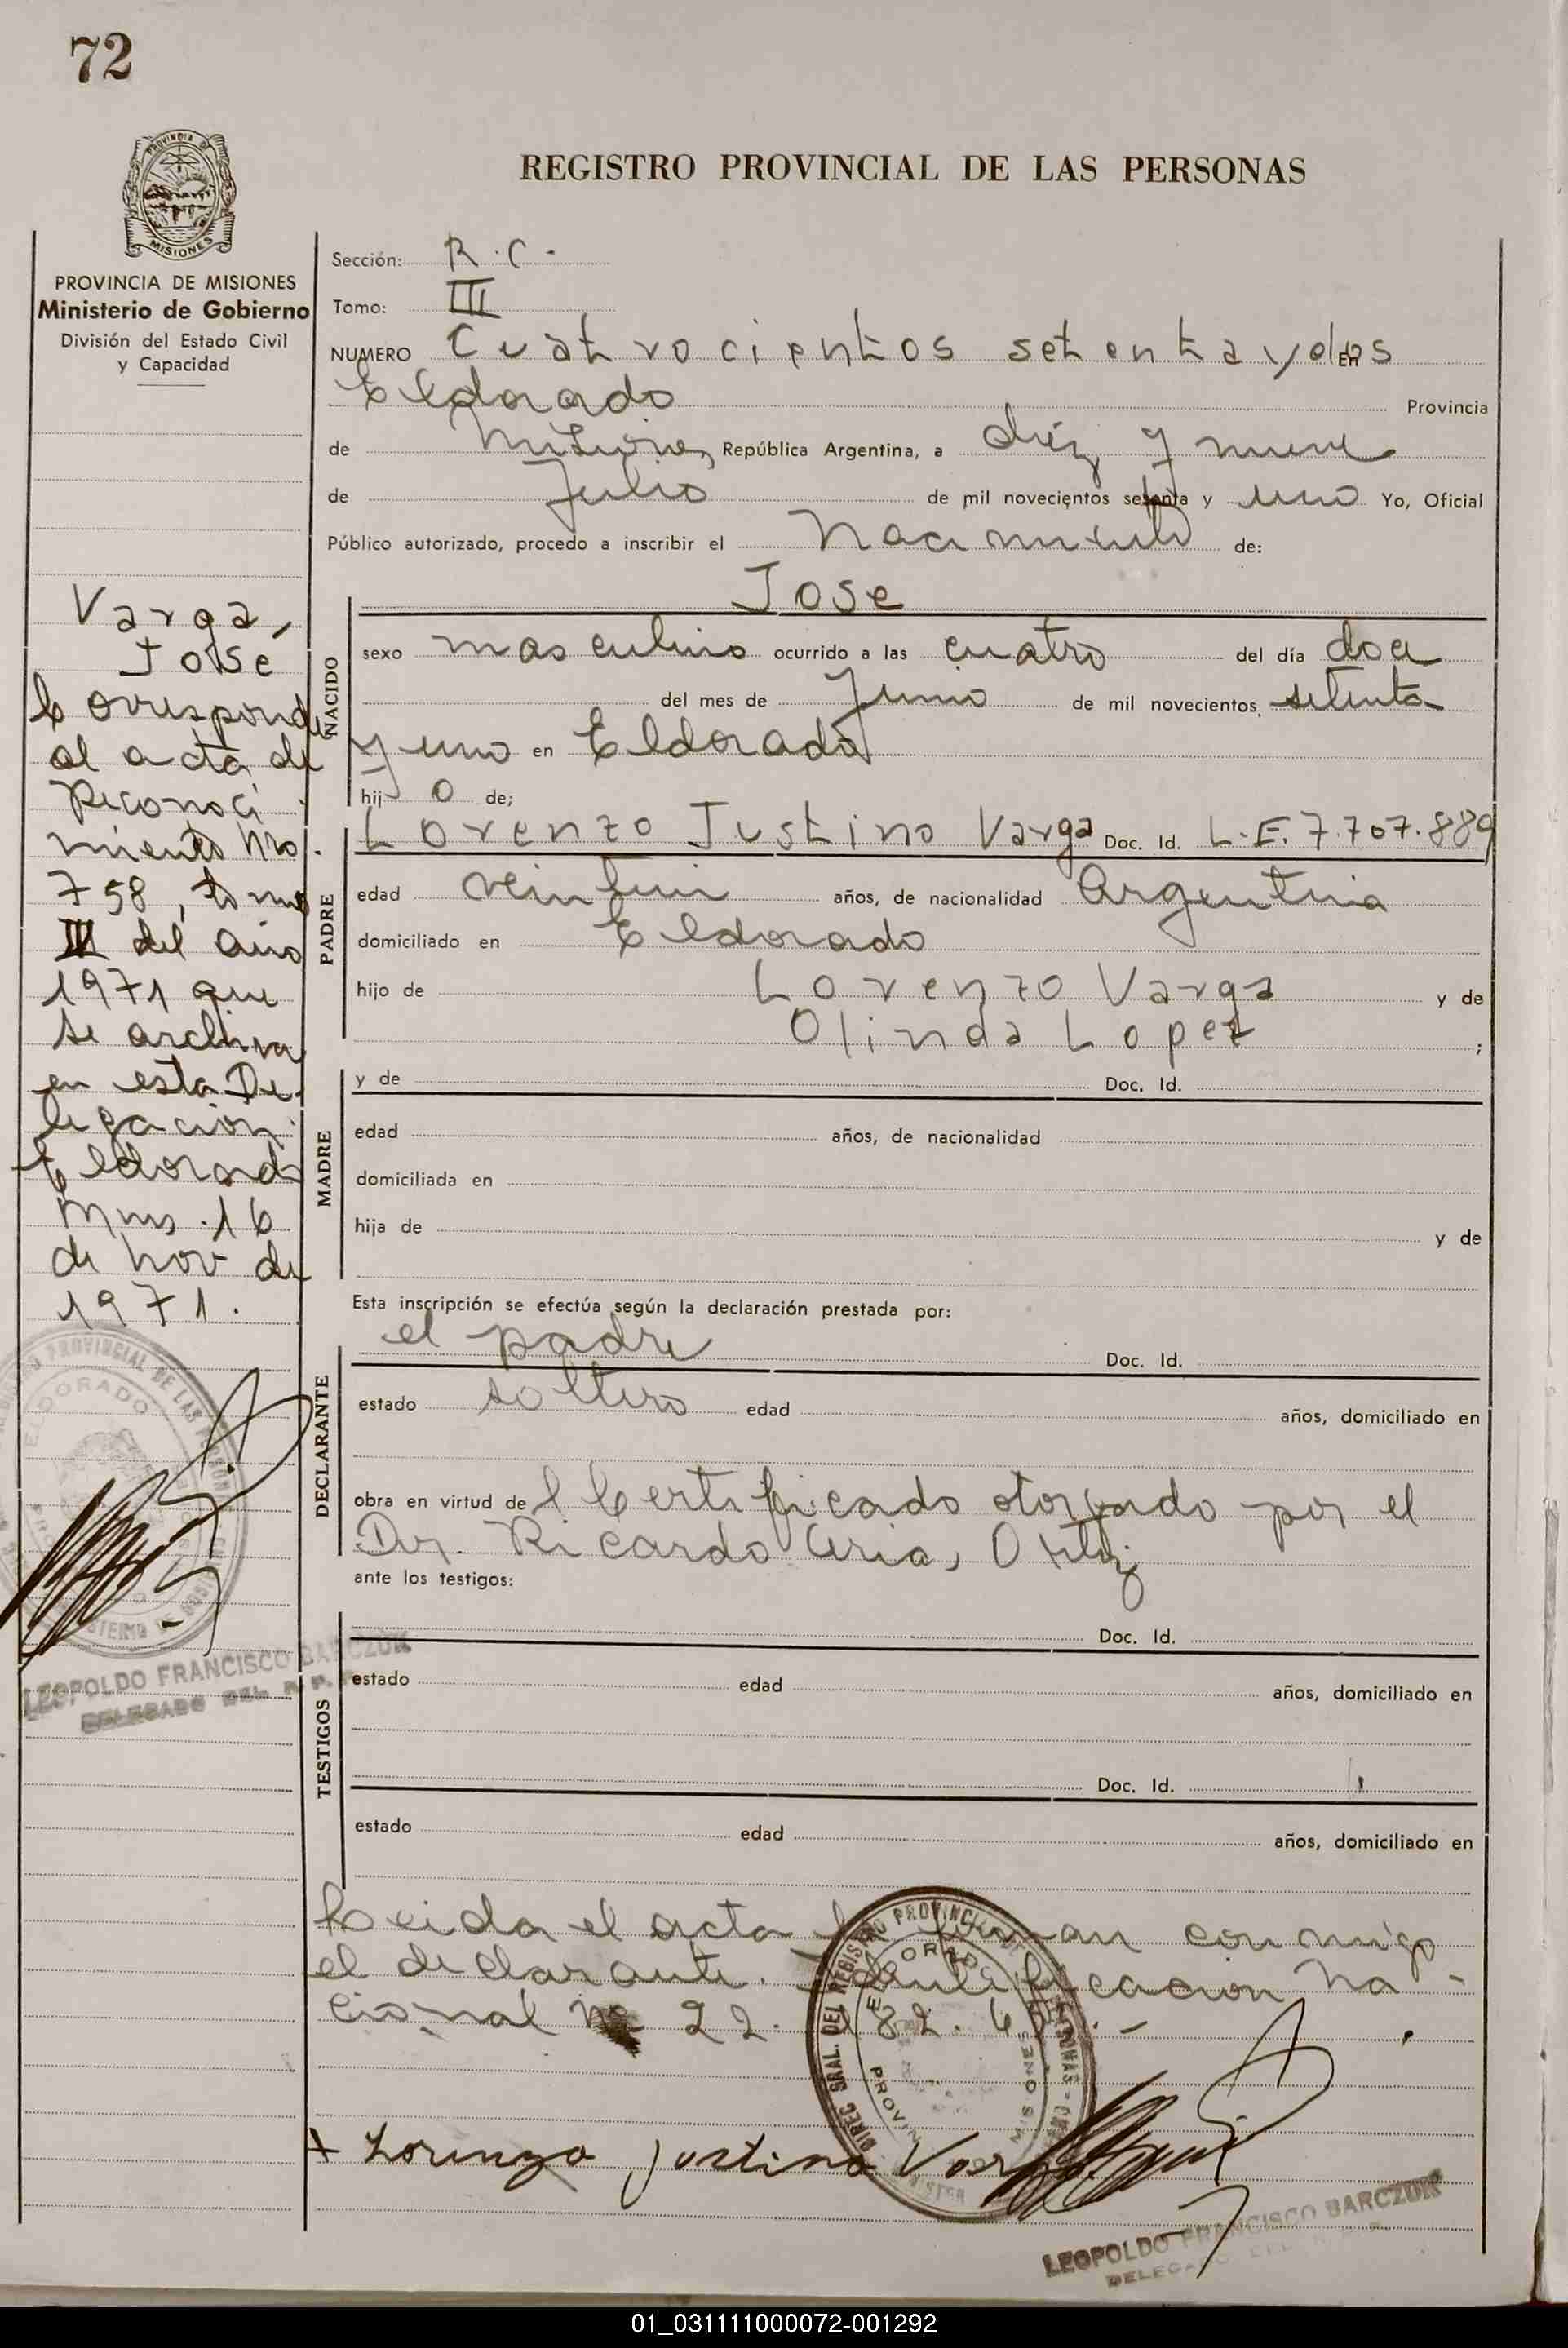 72
PROVINCIA DE
MISIONES
REGISTRO PROVINCIAL DE LAS PERSONAS
PROVINCIA DE MISIONES
Ministerio de Gobierno
División del Estado Civil
y Capacidad
Sección: R.C.-
Tomo: III
NUMERO Cuatrocientos setenta y dos EN
Eldorado Provincia
de Misiones República Argentina, a diéz y nueve
de Julio de mil novecientos setenta y uno Yo, Oficial
Público autorizado, procedo a inscribir el Nacimiento de:
Varga,
José
Corresponde
al acta de
Reconoci
miento Nro.
758, tomo
III del año
1971 que
se archiva
en esta De-
legación.
Eldorado
Mnes. 16
de Nov de
1971.
NACIDO
Jose
sexo masculino ocurrido a las cuatro del día doce
del mes de Junio de mil novecientos setenta
y uno en Eldorado
hij o de;
PADRE
Lorenzo Justino Varga Doc. Id. L.E. 7.707.889
edad años, de nacionalidad Argentina
domiciliado en Eldorado
hijo de Lorenzo Varga y de
Olinda Lopez ;
MADRE
y de Doc. Id.
edad años, de nacionalidad
domiciliada en
hija de y de
Esta inscripción se efectúa según la declaración prestada por:
DECLARANTE
el padre Doc. Id.
estado soltero edad años, domiciliado en
obra en virtud de l Certificado otorgado por el
Dr. Ricardo Arias Ortiz
ante los testigos:
TESTIGOS
Doc. Id.
estado edad años, domiciliado en
Doc. Id.
estado edad años, domiciliado en
LEOPOLDO FRANCISCO BARCZUK
DELEGADO DEL R. P. P.
Leida el acta la firman conmigo
el declarante. Identificacion Na-
cional No 22.
Lorenzo Justino Varga
LEOPOLDO FRANCISCO BARCZUK
DELEGADO DEL R. P. P.
01_031111000072-001292